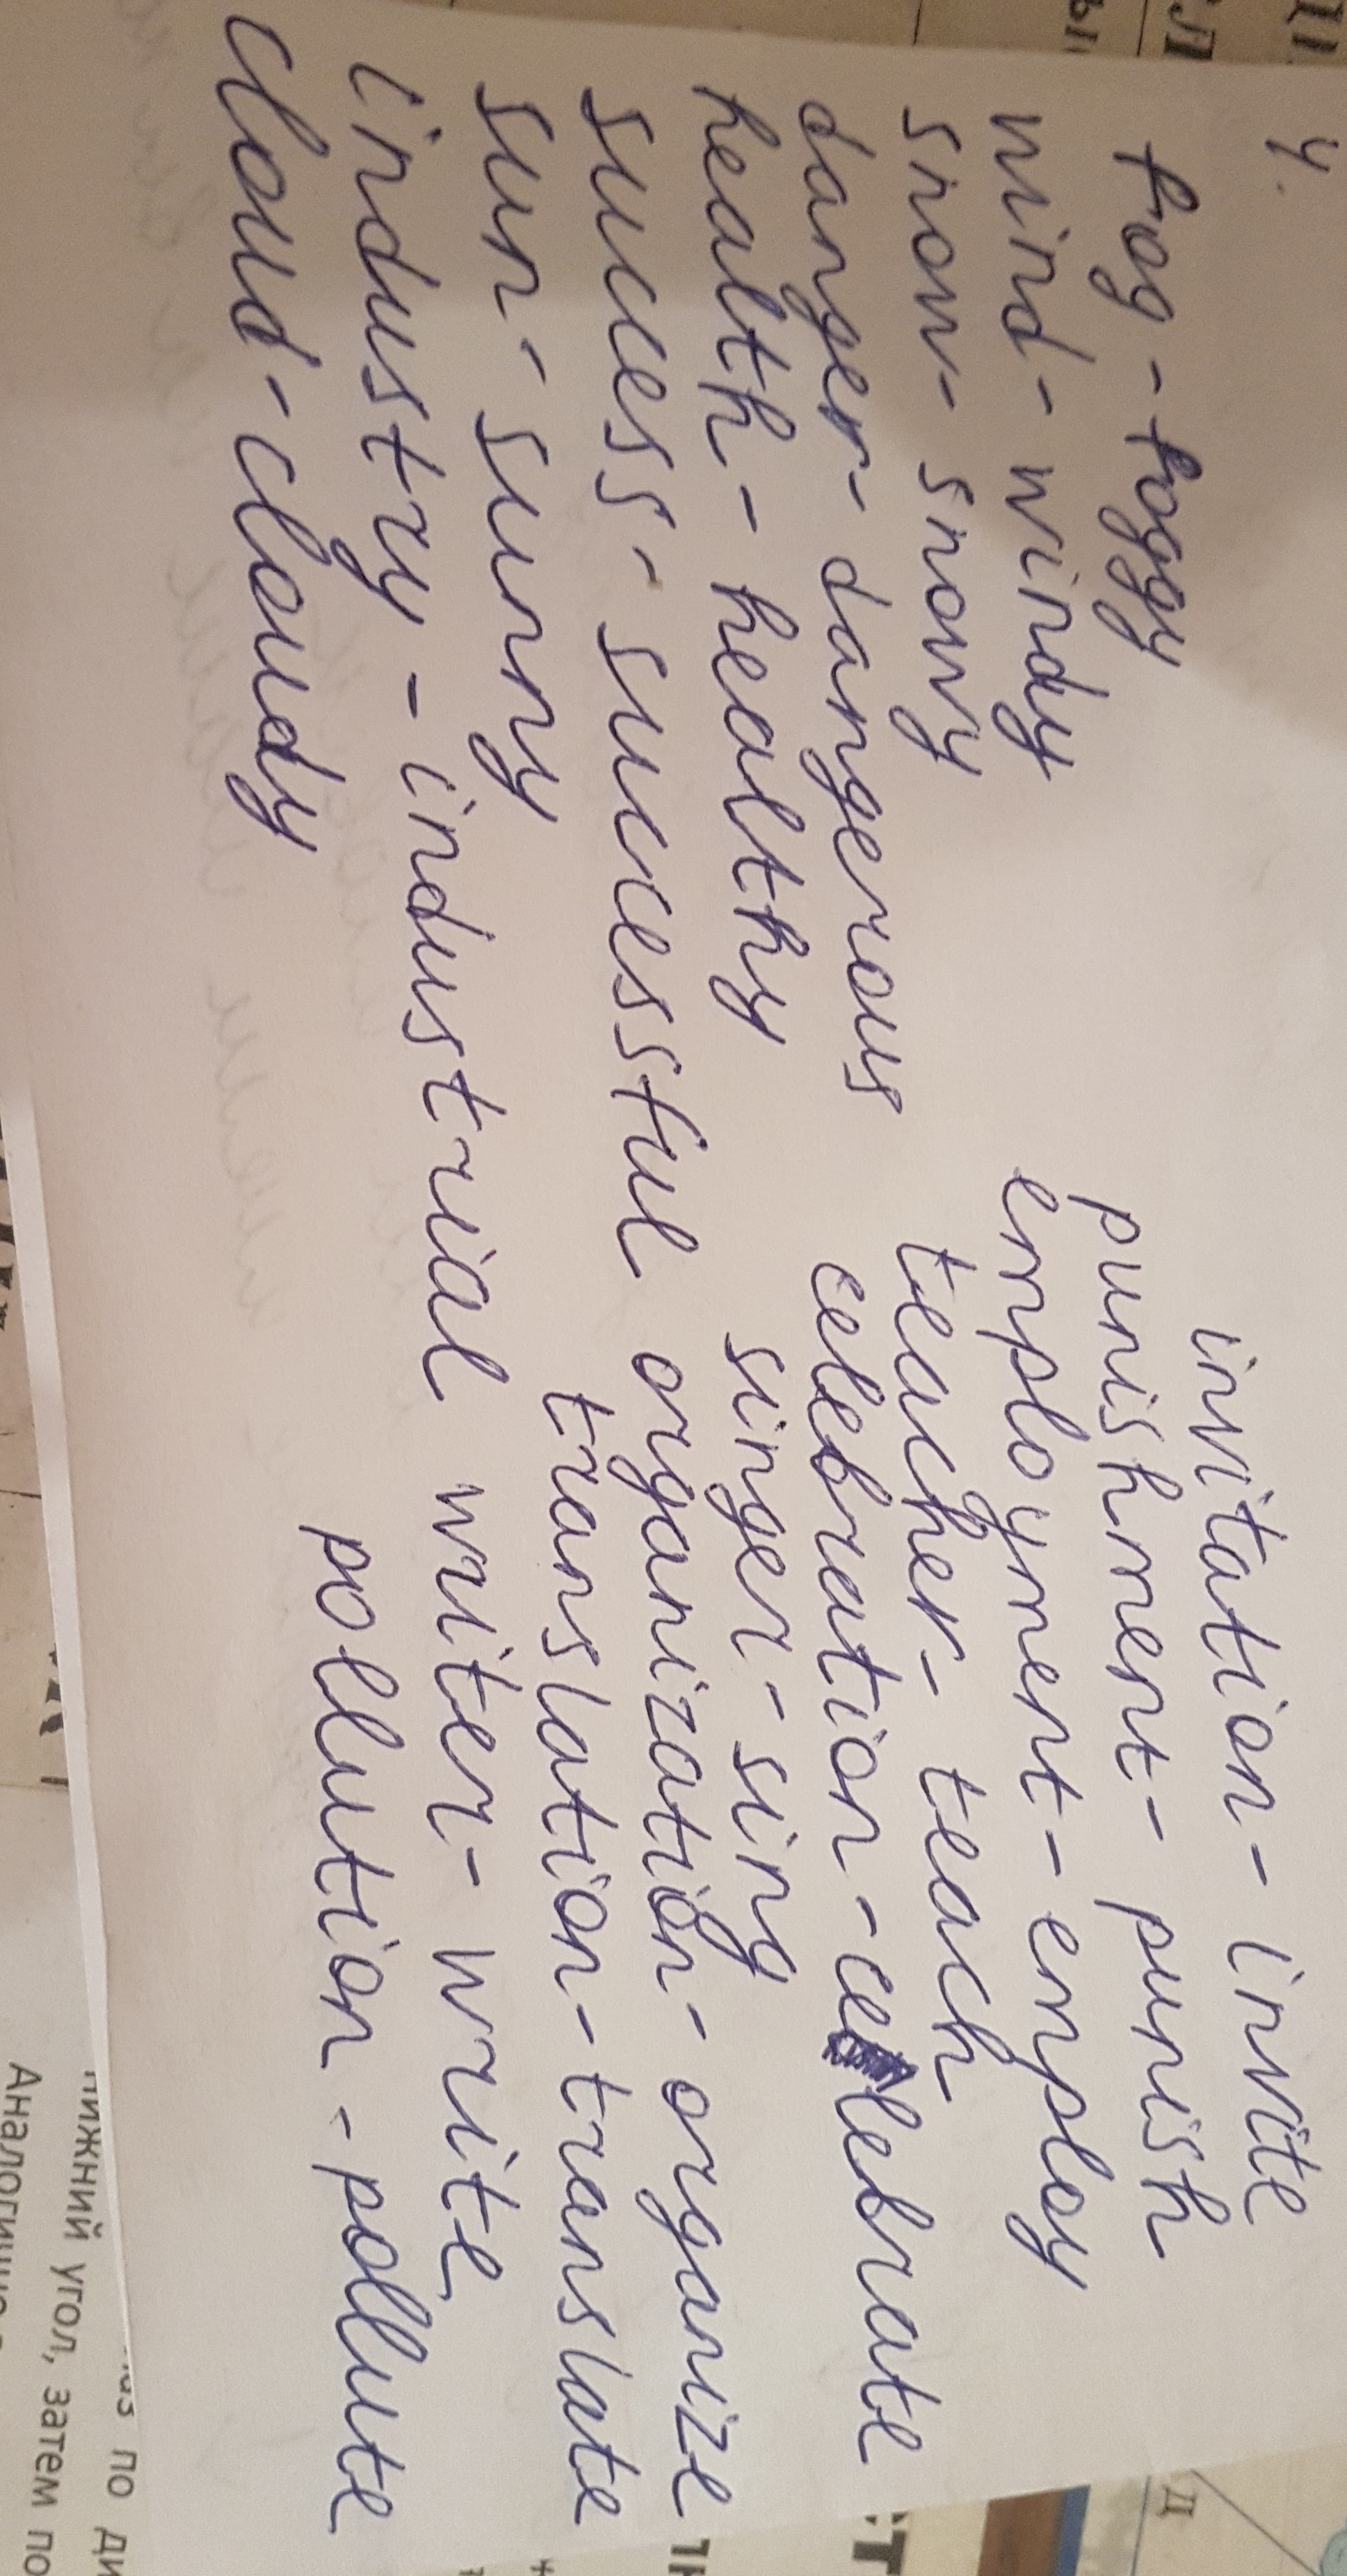 4.
fog - foggy
wind - windy
snow - snowy
danger - dangerous
health - healthy
success - successful
sun - sunny
industry - industrial
cloud - cloudy
invitation - invite
punishment - punish
employment - employ
teacher - teach
celebration - celebrate
singer - sing
organization - organize
translation - translate
writer - write
pollution - pollute
по ди
нижний угол, затем по